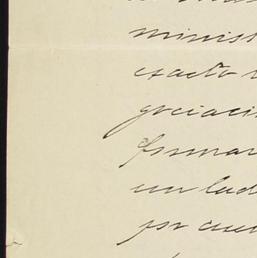 minist
exacto
gociaci
formar
un lad
por cua